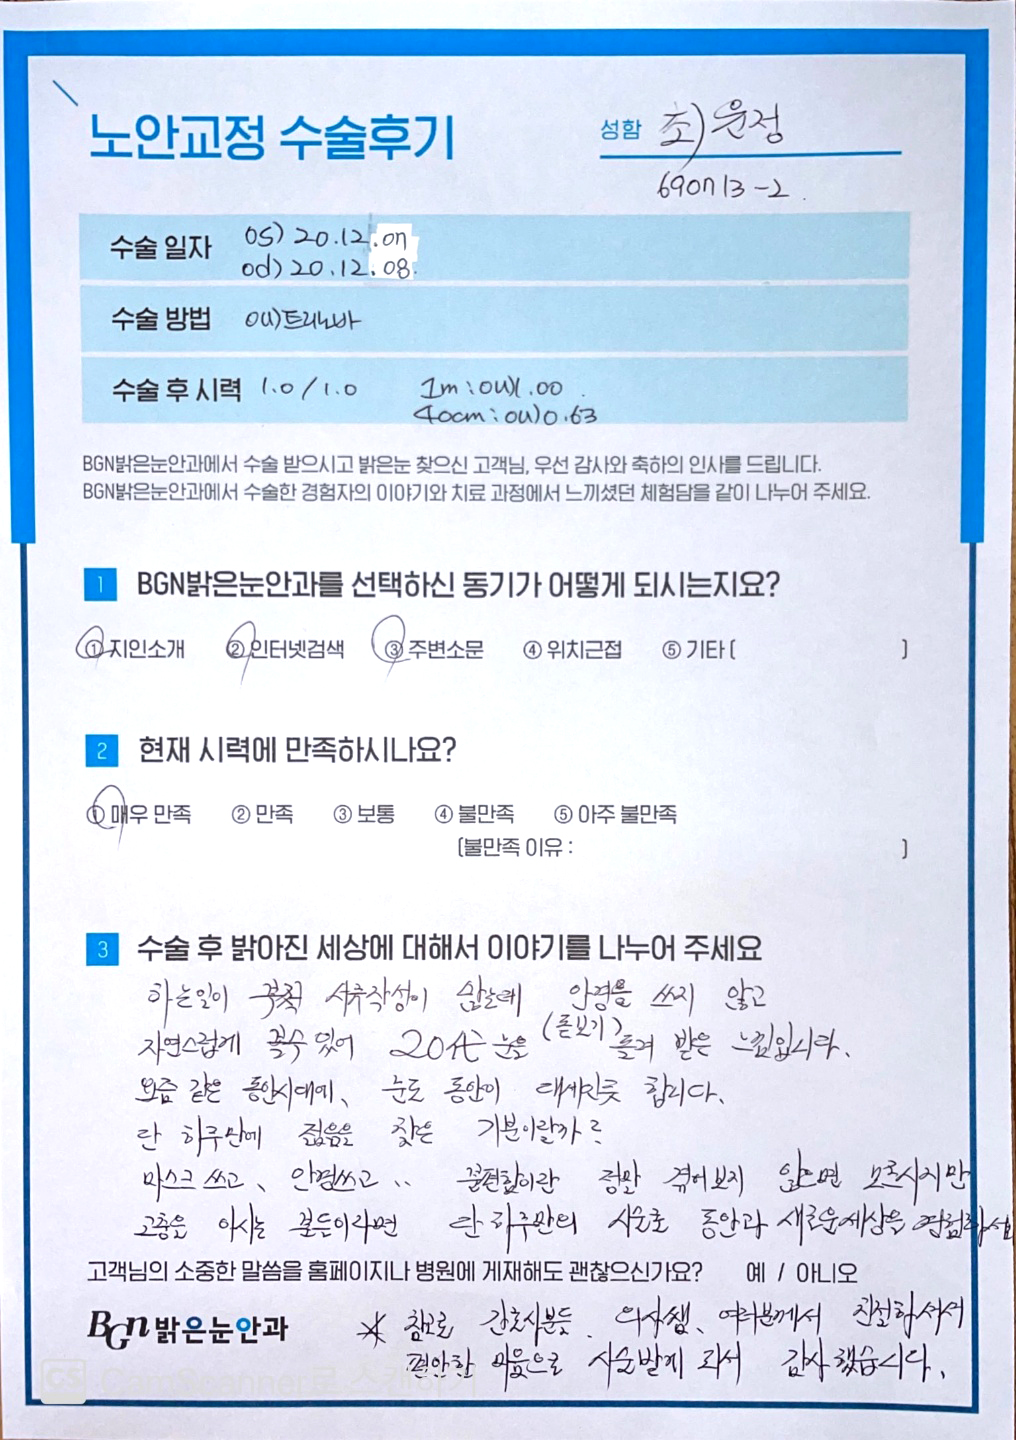 노안교정 수술후기
성함 최)윤정
690713-2
수술 일자 OS) 20.12.07
Od) 20.12.08
수술 방법 OU)트리노바
수술 후 시력 1.0 / 1.0 1m : OU)1.00
40cm : OU)0.63
BGN밝은눈안과에서 수술 받으시고 밝은눈 찾으신 고객님, 우선 감사와 축하의 인사를 드립니다.
BGN밝은눈안과에서 수술한 경험자의 이야기와 치료 과정에서 느끼셨던 체험담을 같이 나누어 주세요.
1 BGN밝은눈안과를 선택하신 동기가 어떻게 되시는지요?
① 지인소개 ② 인터넷검색 ③ 주변소문 ④ 위치근접 ⑤ 기타 ( )
2 현재 시력에 만족하시나요?
① 매우 만족 ② 만족 ③ 보통 ④ 불만족 ⑤ 아주 불만족
(불만족 이유 : )
3 수술 후 밝아진 세상에 대해서 이야기를 나누어 주세요
하는일이 서류작성이 안경을 쓰지 않고
자연스럽게 볼수 있어 20代 눈을 (돋보기) 돌려 받은 느낌입니다.
요즘 같은 동안시대에, 눈도 동안이 대세인듯 합니다.
단 하루만에 젊음을 찾은 기분이랄까?
마스크 쓰고, 안경쓰고.. 불편함이란 정말 겪어보지 않으면 모르시지만
고충을 아시는 분들이라면 단 하루만의 시술로 동안과 새로운세상을
고객님의 소중한 말씀을 홈페이지나 병원에 게재해도 괜찮으신가요? 예 / 아니오
BGN밝은눈안과 * 참으로 간호사분들, 의사쌤, 여러분께서 친절하셔서
편안한 마음으로 시술받게 되서 감사했습니다.
CS CamScanner로 스캔하기